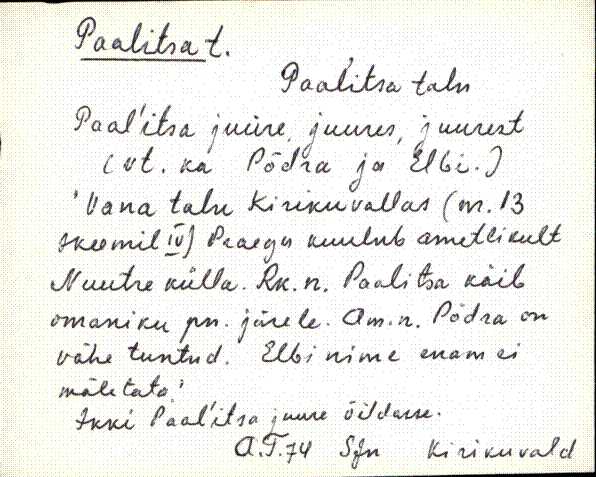 Paalitsa t.
Paal'itsa talu
Paal'itsa juure, juures, juurest
(vt. ka Põdra ja Elbi.)
'Vana talu Kirikuvallas (nr. 13
skeemil IV) Praegu kuulub ametlikult
Nuutre külla. Rk.n. Paalitsa käib
omaniku pn. järele. Am.n. Põdra on
vähe tuntud. Elbi nime enam ei
mäletata'
Ikki Paal'itsa juure õildasse.
A.T. 74 Sjn Kirikuvald